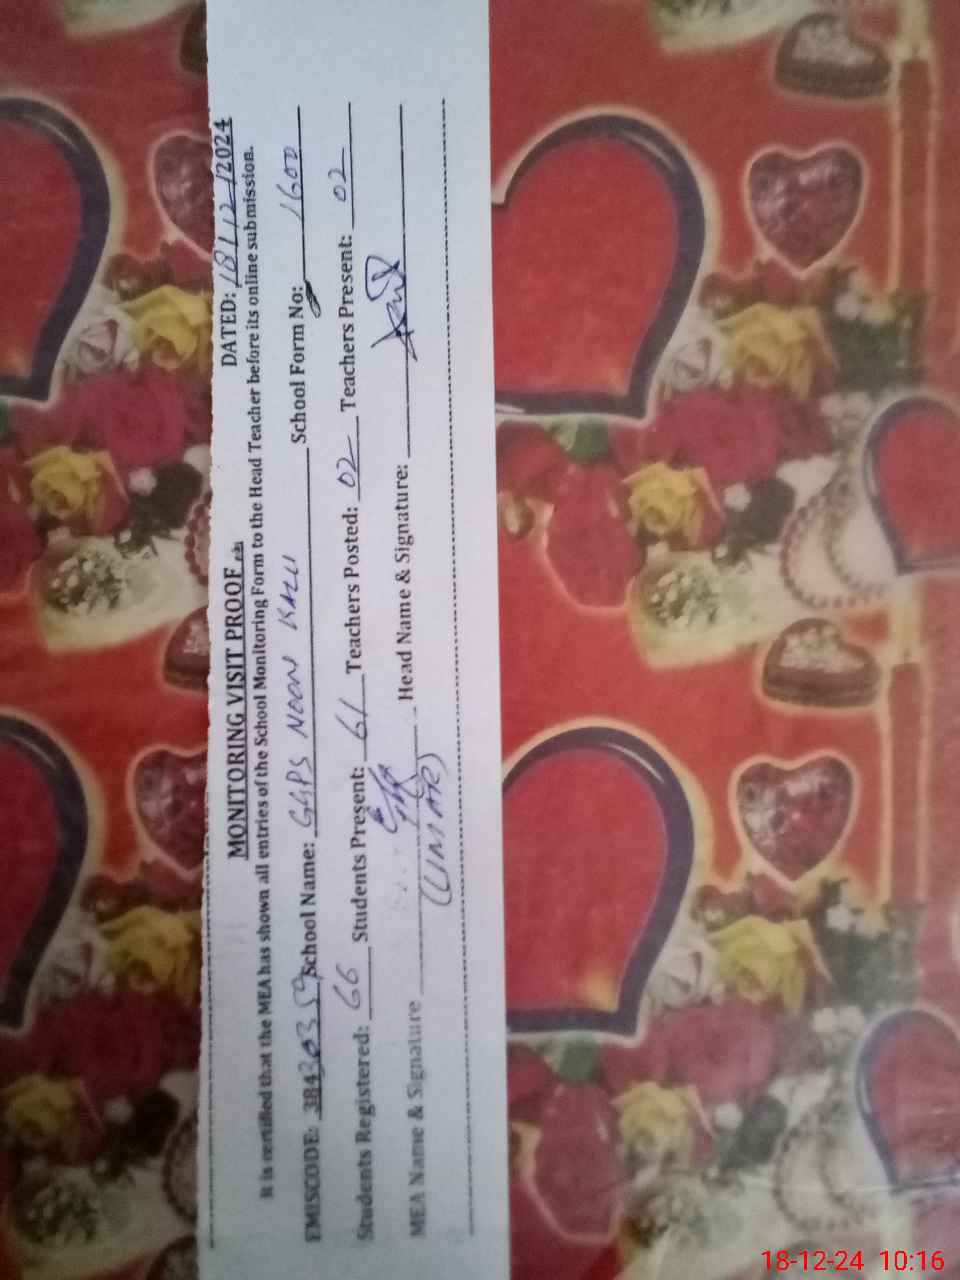 MONITORING VISIT PROOF DATED: 18/12/2024
It is certified that the MEA has shown all entries of the School Monitoring Form to the Head Teacher before its online submission.
EMISCODE: 38430359 School Name: GGPS NOON KALU School Form No: 1600
Students Registered: 66 Students Present: 61 Teachers Posted: 02 Teachers Present: 02
MEA Name & Signature Head Name & Signature:
(UMAR)
18-12-24 10:16